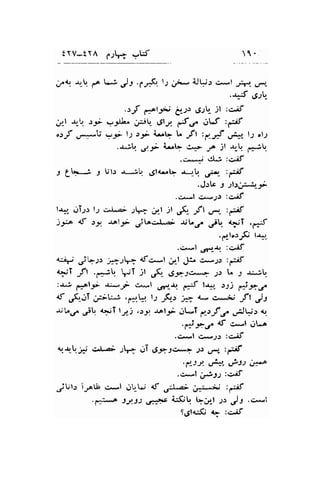 ۱۹۰ کتاب چهارم ۴۲۸-۴۲۷
پس بهتر است دنبالهٔ سخن را بگیرم. ولی شما هم باید بمن
یاری کنید.
گفت: از یاری دریغ نخواهیم کرد.
گفتم: گمان می‌کنم برای یافتن مطلوب خود باید این
راه را پیش گیریم: اگر ما جامعهٔ خود را خوب تأسیس کرده
باشیم باید از هر حیث جامعهٔ خوبی باشد.
گفت: شك نیست.
گفتم: یعنی بایـد جامعه‌ای باشـد دانا و شـجاع و
خویشتن‌دار و عادل.
گفت: درست است.
گفتم: پس اگر یکی از این چهار خصلت را در آن پیدا
کنیم، آنچه باقی می‌ماند خصلت‌هائی خواهد بود که هنوز
پیدا نکرده‌ایم.
گفت: بدیهی است.
گفتم: درست مثل این است‌که چهارچیز درجائی نهفته
باشند و ما در جست‌وجوی یکی از آنها باشیم. اگر آنچه
می‌جوئیم زود پیدا کنیم بدیهی است خرسند خواهیم شد؛
ولی اگر نخست سه چیز دیگر را بیابیم، شناختن آن‌یکی که
به دنبالش می‌گردیم آسان خواهد بود، زیرا آنچه باقی می‌ماند
همان است که می‌جوئیم.
گفت: درست است.
گفتم: پس در جست‌وجوی آن چهار خصلت نیز باید به
همین روش پیش برویم.
گفت: روشن است.
گفتم: نخستین خصلتی که نمایان است ظاهراً دانائی
است. ولی در این‌جا بانکتهٔ عجیبی روبرو هستیم.
گفت: چه نکته‌ای؟